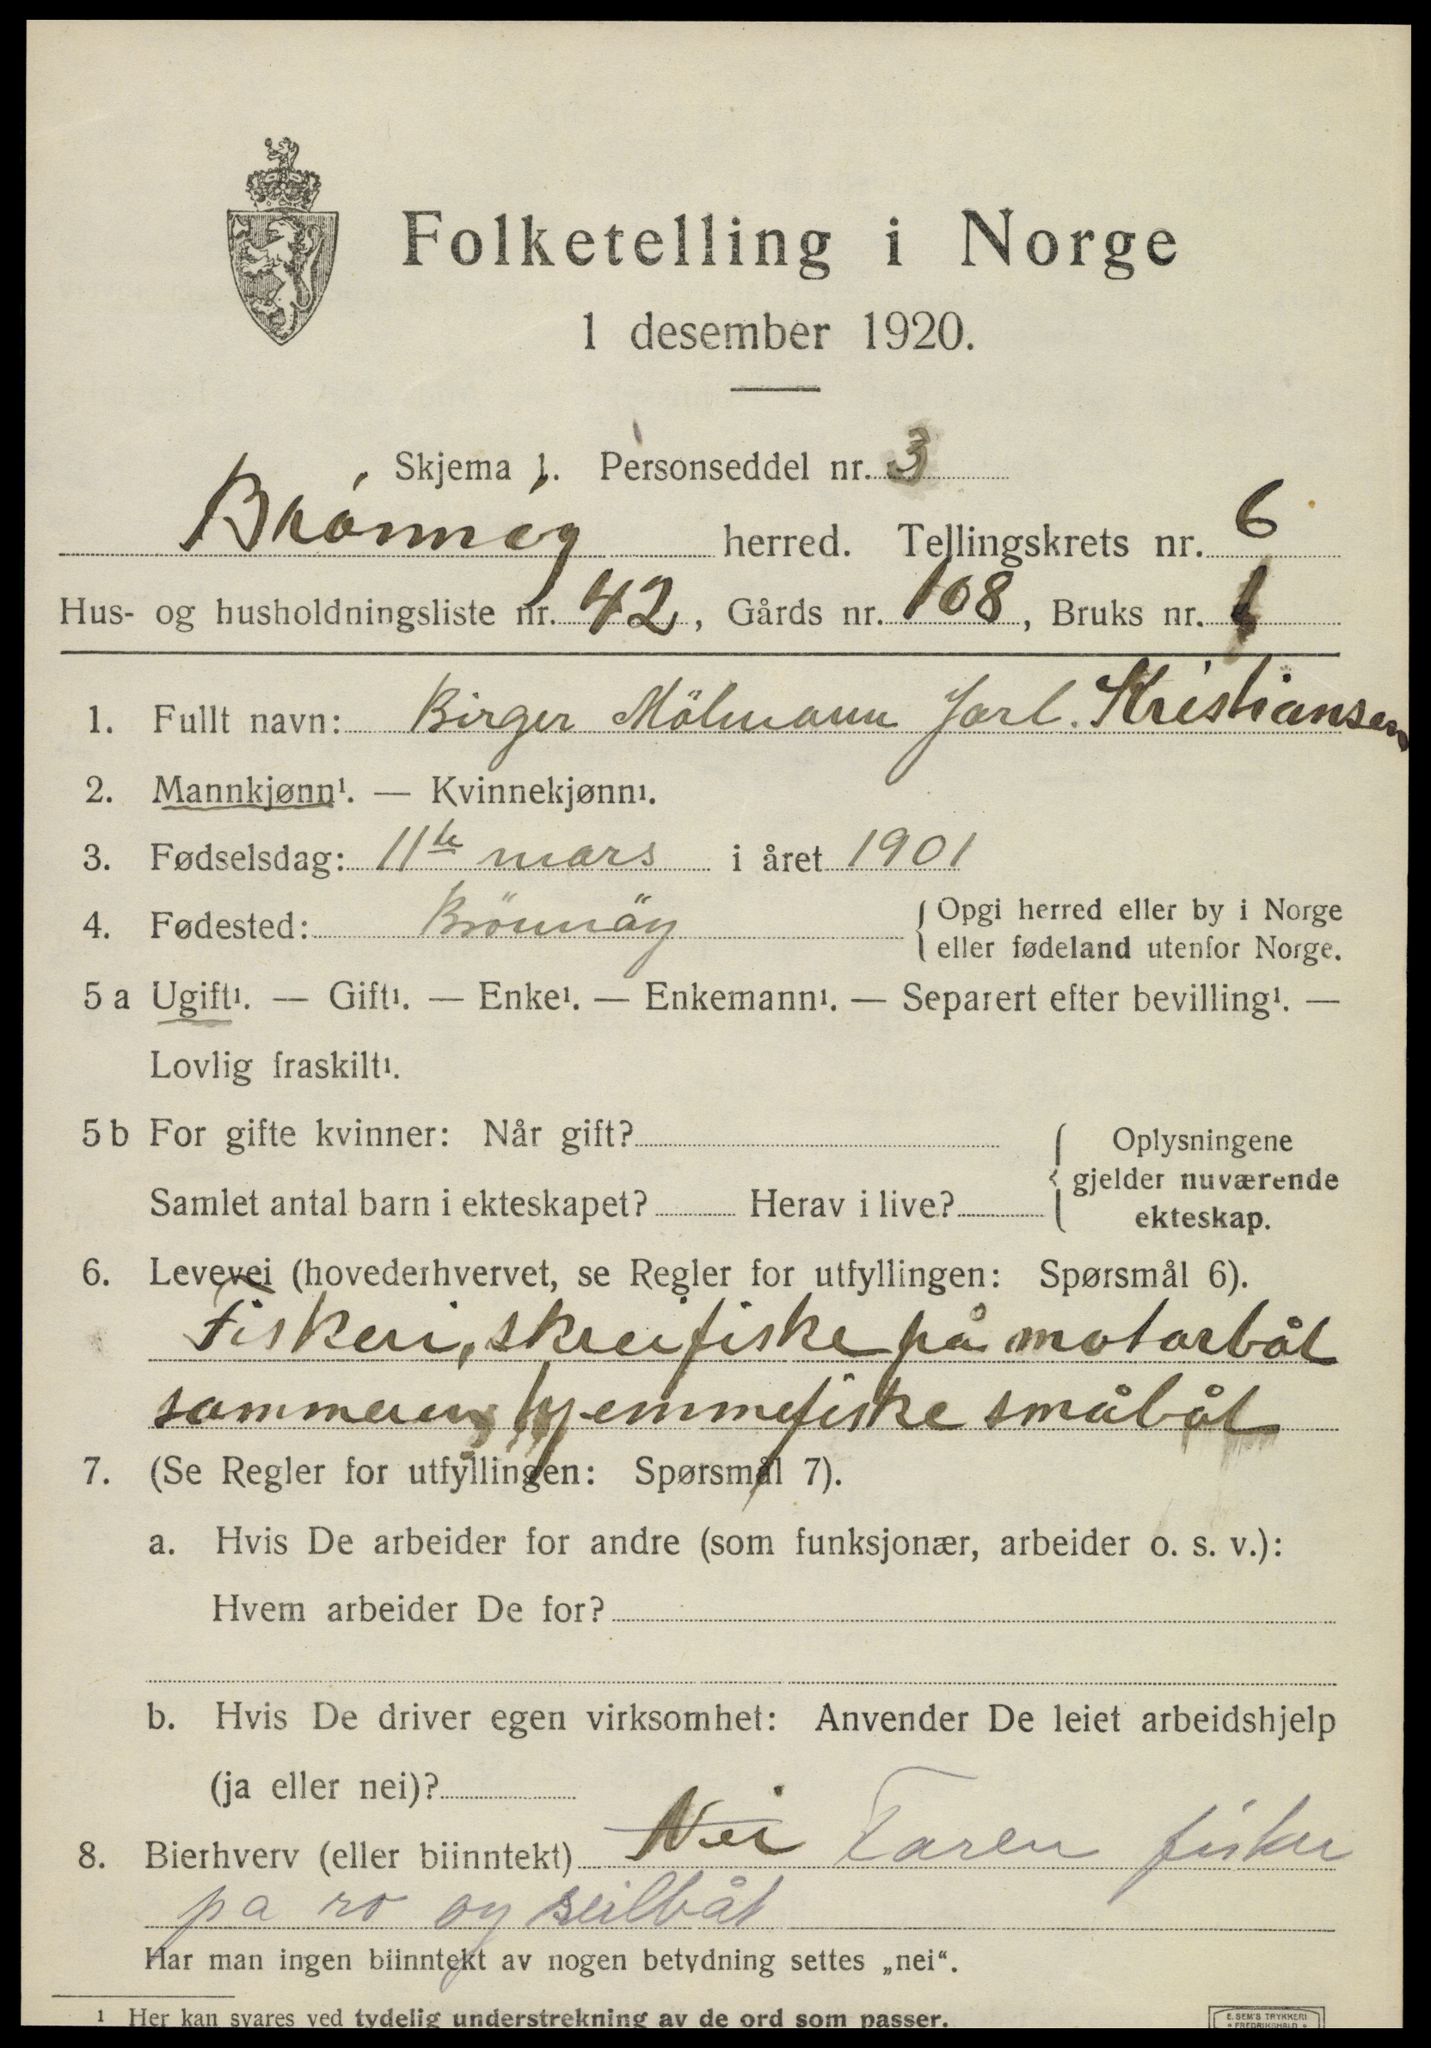 Folketelling i Norge
1 desember 1920.
Skjema 1. Personseddel nr. 3
Brønnøy herred. Tellingskrets nr. 6
Hus- og husholdningsliste nr. 42, Gårds nr. 108, Bruks nr. 1
1. Fullt navn: Birger Mölmann Jarl. Kristiansen
2. Mannkjønn¹. — Kvinnekjønn¹.
3. Fødselsdag: 11te mars i året 1901
4. Fødested: Brönnöy { Opgi herred eller by i Norge
eller fødeland utenfor Norge.
5 a Ugift¹. — Gift¹. — Enke¹. — Enkemann¹. — Separert efter bevilling¹. —
Lovlig fraskilt¹.
5 b For gifte kvinner: Når gift? { Oplysningene
gjelder nuværende
Samlet antal barn i ekteskapet? Herav i live? ekteskap.
6. Levevei (hovederhvervet, se Regler for utfyllingen: Spørsmål 6).
Fiskeri, skreifiske på motorbåt
sommeren hjemmefiske småbåt
7. (Se Regler for utfyllingen: Spørsmål 7).
a. Hvis De arbeider for andre (som funksjonær, arbeider o. s. v.):
Hvem arbeider De for?
b. Hvis De driver egen virksomhet: Anvender De leiet arbeidshjelp
(ja eller nei)?
8. Bierhverv (eller biinntekt) Nei Faren fisker
pa ro og seilbåt
Har man ingen biinntekt av nogen betydning settes „nei“.
¹ Her kan svares ved tydelig understrekning av de ord som passer.
E. SEM'S TRYKKERI
FREDRIKSHALD